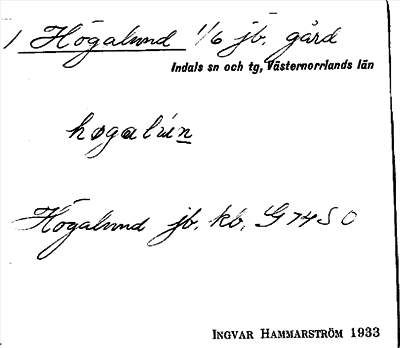 1 Högalund 1/6 jb. gård
Indals sn och tg, Västernorrlands län
høgalun
Högalund jb. kb. G 74 S O
INGVAR HAMMARSTRÖM 1933